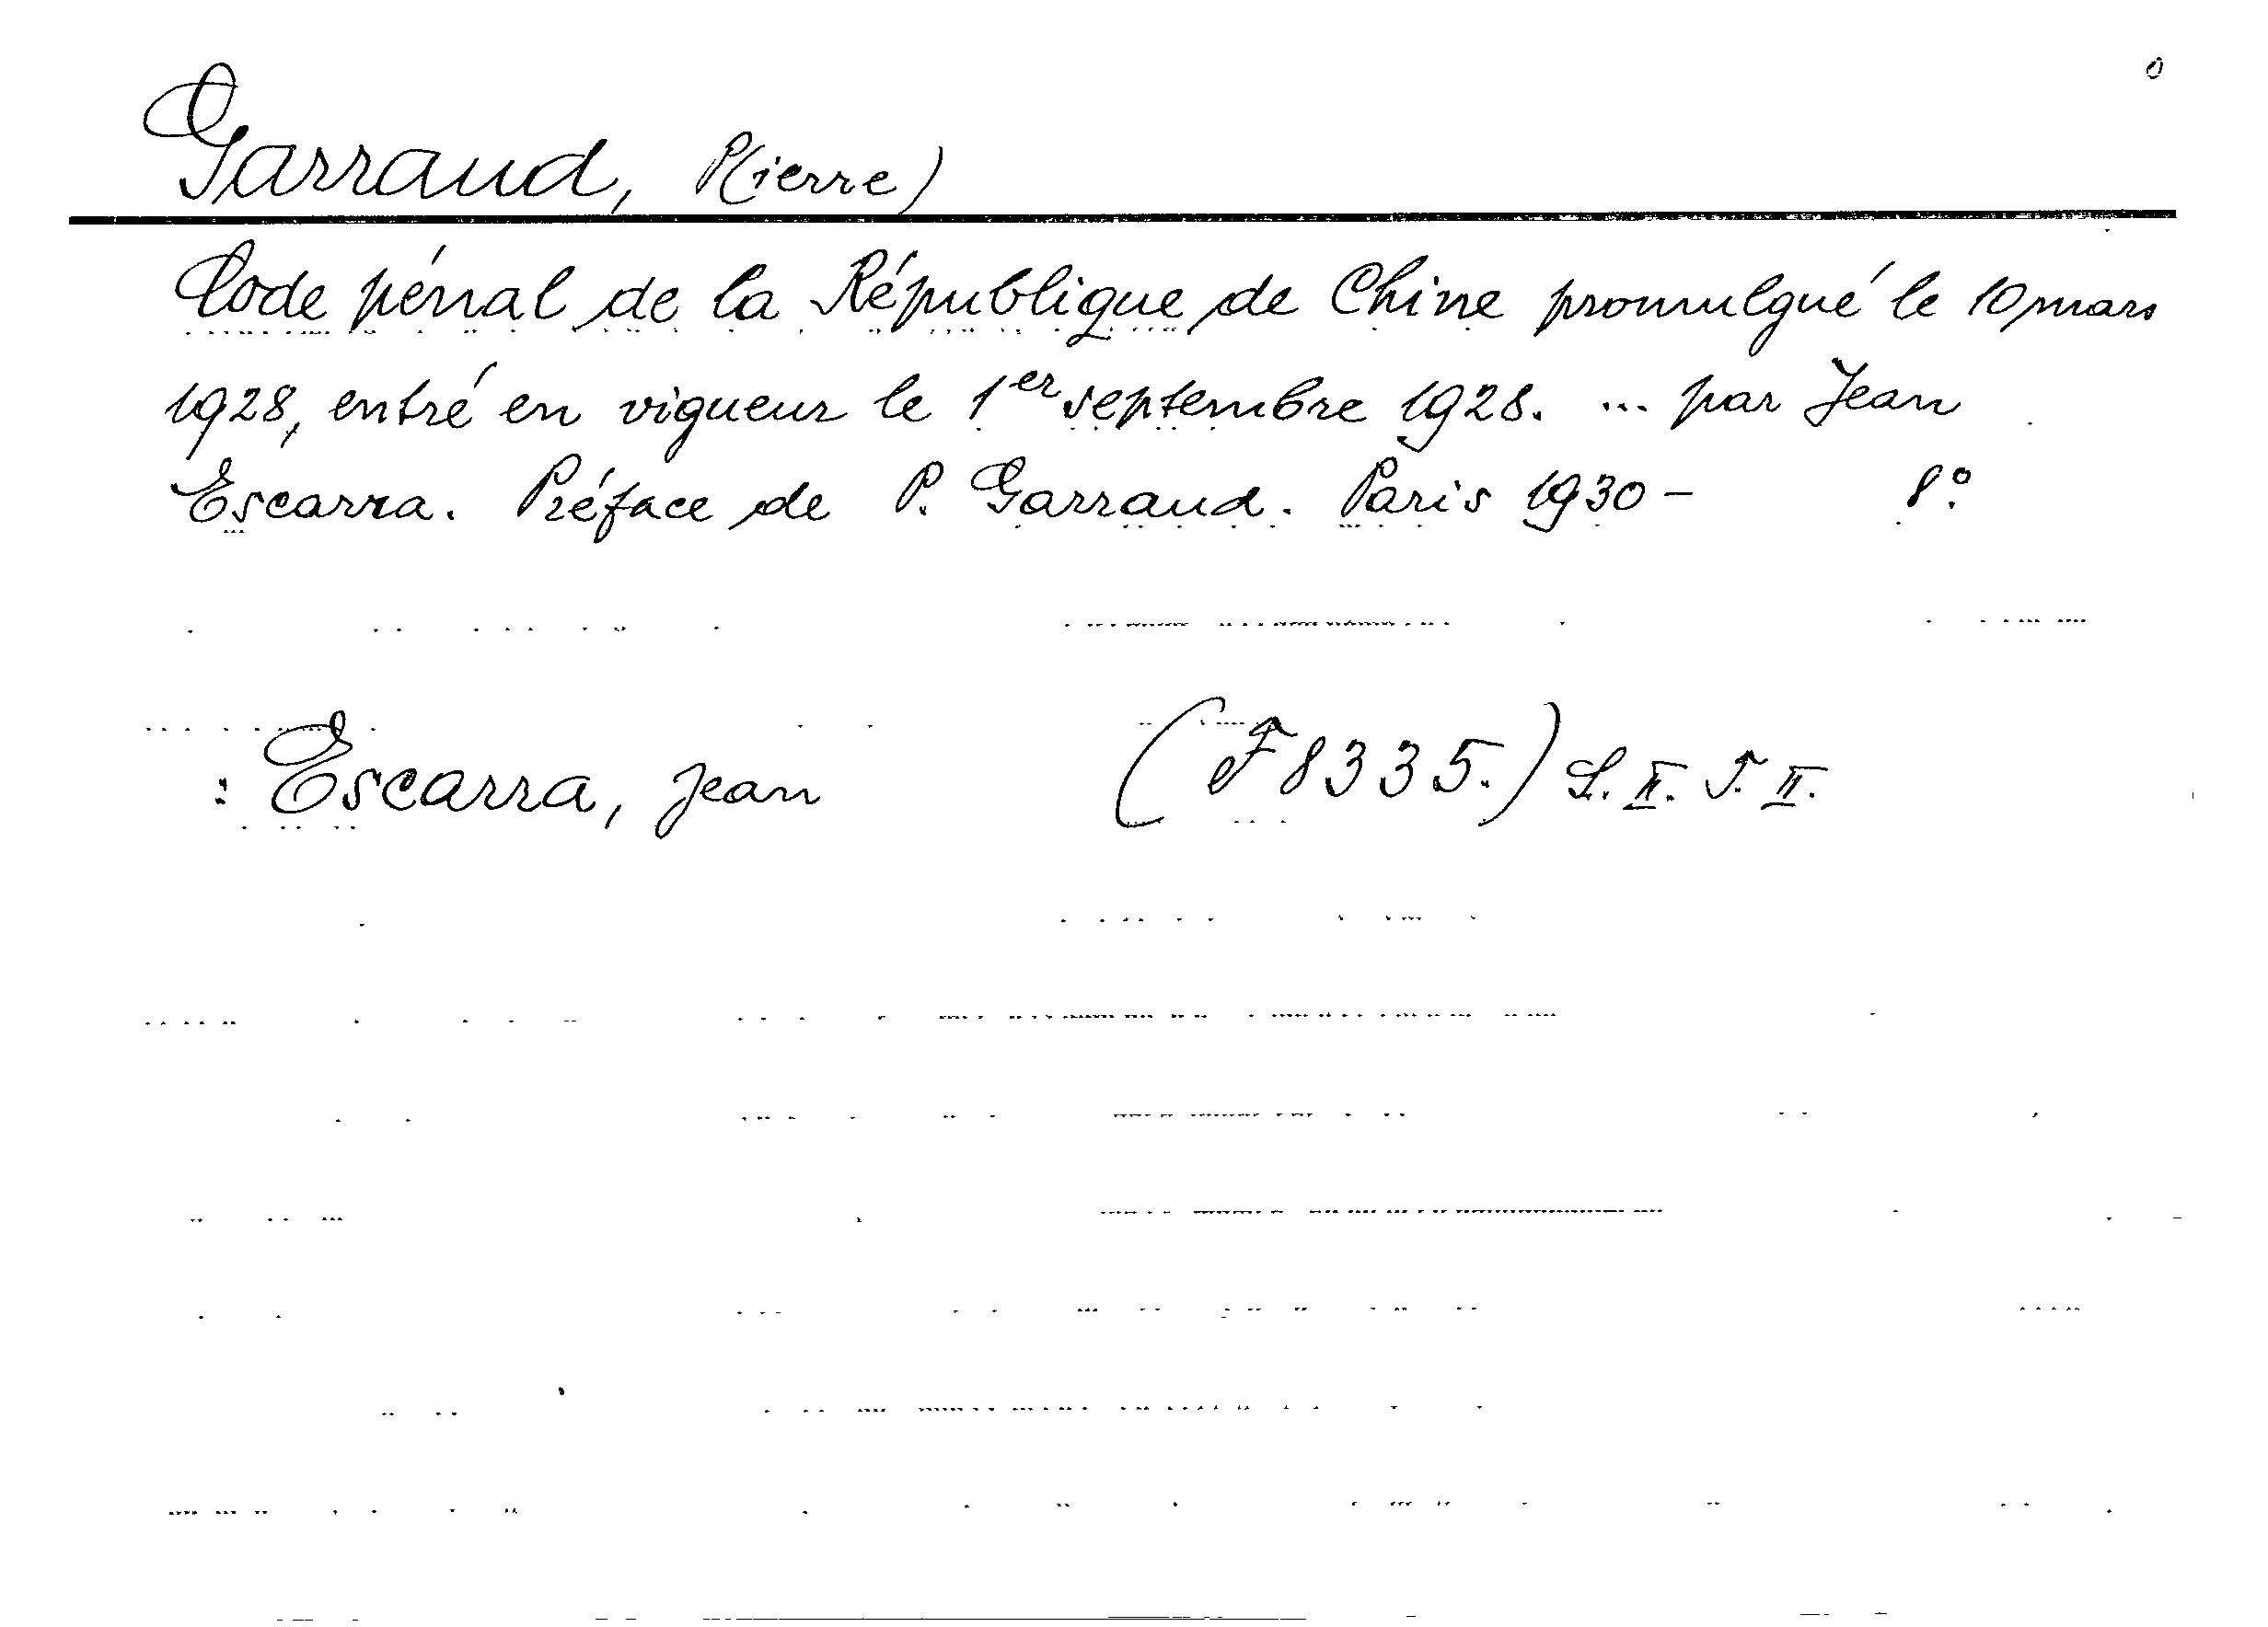 Garraud, P(ierre)
Code pénal de la République de Chine promulgué le 10 mars
1928, entré en vigueur le 1er septembre 1928. ... par Jean
Escarra. Préface de P. Garraud. Paris 1930 – 8°.
: Escarra, Jean (F 8335.) L. II. T. II.